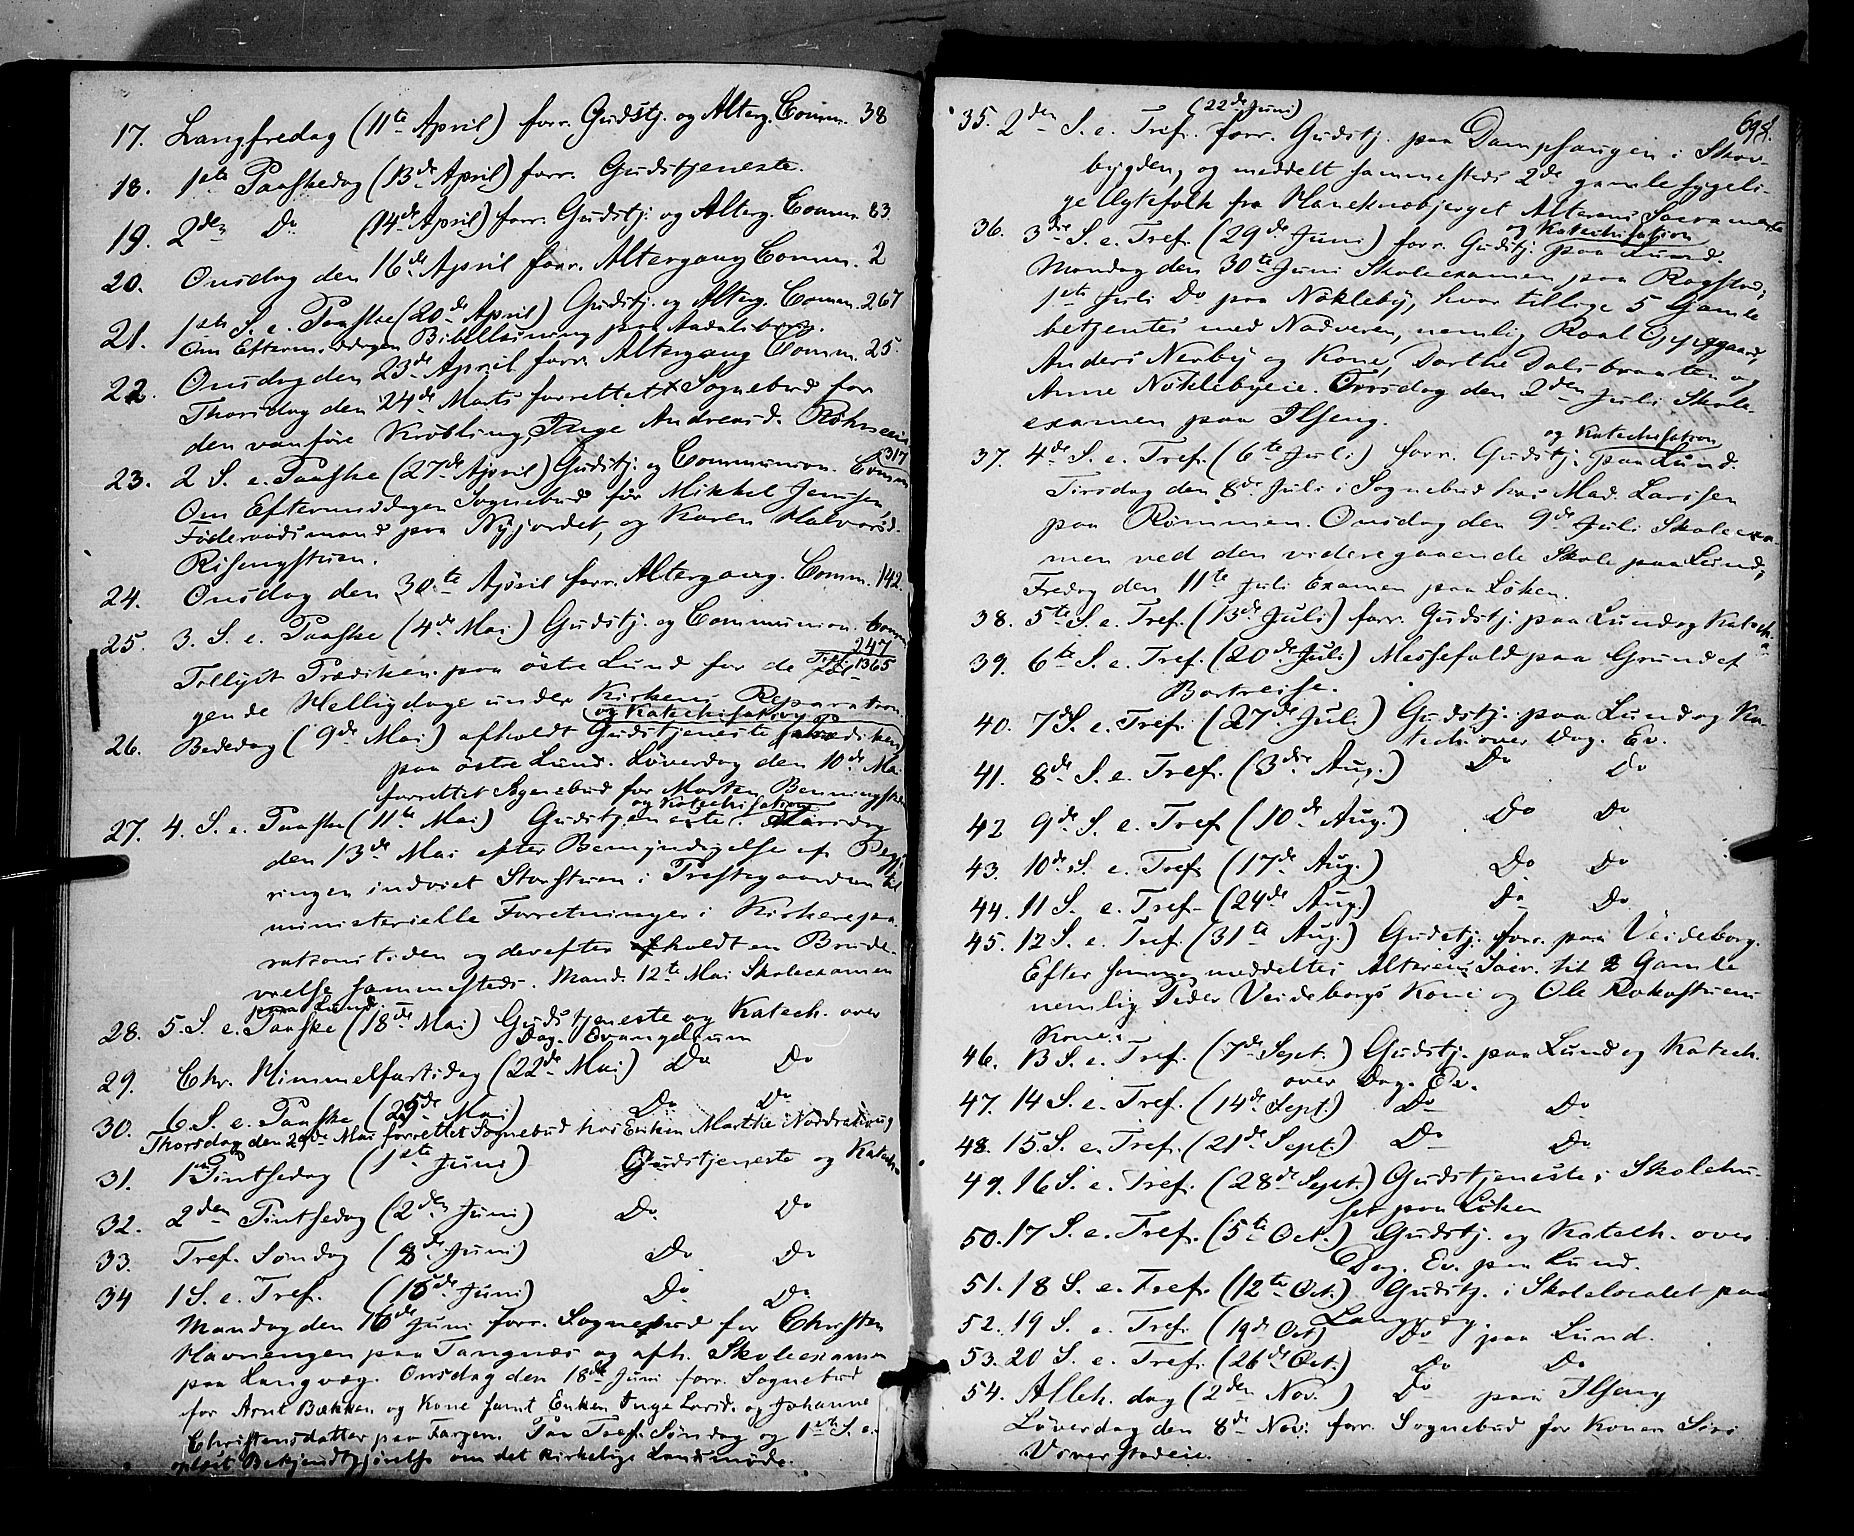 17. Langfredag (11te April) forr. Gudstj. og Alterg. Comm. 38
18. 1ste Paaskedag (13de April) forr. Gudstjeneste.
19. 2den Do (14de April) forr. Gudstj. og Alterg. Comm. 83
20. Onsdag den 16de April forr. Altergang Comm. 2
21. 1ste S. e. Paaske (20de April) Gudstj. og Alterg. Comm. 267
Om Efterm.dagen Bibellæsning paa Aadalsborg.
22. Onsdag den 23de April forr. Altergang Comm. 25.
Thorsdag den 24de Marts forrettet Sognebud for
den vanføre Krøbling, Inge Andreasd. Røhneeie
23. 2 S. e. Paaske (27de April) Gudstj. og Communion. Comm 317
Om Eftermiddagen Sognebud for Mikkel Jensen,
Føderaadsmand paa Nyjordet, og Karen Halvorsd.
Risengstuen.
24. Onsdag den 30te April forr. Altergang. Comm. 142.
25. 3. S. e. Paaske (4de Mai) Gudstj. og Communion. Comm
247
Tils. 1365
Tællyst Prædiken paa østre Lund for de føl-
gende Helligdage under Kirkens Reparation.
og Katechisation
26. Bededag (9de Mai) afholdt Gudstjeneste
paa østre Lund. Løverdag den 10de Mai
forrettet Sognebud for Morten Benningstad
og Katechisation
27. 4. S. e. Paaske (11te Mai) Gudstjeneste. Tirsdag
den 13de Mai efter Bemyndigelse af Regje
ringen indviet Storstuen i Præstegaarden til
ministerielle Forretninger i Kirkerepa-
rationstiden og derefter afholdt en Brude-
vielse sammesteds. Mand. 12te Mai Skoleexamen
paa Lund.
28. 5. S. e. Paaske (18de Mai) Gudstjeneste og Katech. over
Dag. Evangelium
29. Chr. Himmelfartsdag (22de Mai) Do Do
30. 6 S. e. Paaske (25de Mai) Do Do
Thorsdag den 29de Mai forrettet Sognebud hos Enken Marthe Nordrekrug
31. 1ste Pintsedag (1ste Juni) Gudstjeneste og Katech.
32. 2den Pintsedag (2den Juni) Do Do
33. Tref. Søndag (8de Juni) Do Do
34 1 S. e. Tref. (15de Juni) Do Do
Mandag den 16de Juni forr. Sognebud for Christen
Havnengen paa Tangnæs og afh. Skoleexamen
paa Langvæg. Onsdag den 18de Juni forr. Sognebud
for Arnt Bækken og Kone samt Enken Inge Larsd. og Johanne
Christensdatter paa Fargen. Paa Tref. Søndag og 1ste S. e.
oplæst Bekjendtgjørelse om det kirkelige Landsmøde.
698.
(22de Juni)
35. 2den S. e. Tref. forr. Gudstj. paa Dampsaugen i Skov-
bygden, og meddelt sammesteds 2de gamle sygeli-
ge Ægtefolk fra Haneknæbjerget Alterens Sacramente
og Katechisation
36. 3die S. e. Tref. (29de Juni) forr. Gudstj. paa Lund.
Mandag den 30te Juni Skoleexamen paa Rogstad;
1ste Juli Do paa Nøkleby, hvor tillige 5 Gamle
betjentes med Nadveren, nemlig Roal Oppegaard,
Anders Nerby og Kone, Dorthe Dalsbraaten og
Anne Nøklebyeie. Torsdag den 2den Juli Skole-
examen paa Ilseng.
og Katechisation
37. 4de S. e. Tref. (6te Juli) forr. Gudstj. paa Lund.
Tirsdag den 8de Juli i Sognebud hos Mad. Larssen
paa Rommen. Onsdag den 9de Juli Skoleexa-
men ved den videregaaende Skole paa Lund;
Fredag den 11te Juli Examen paa Løken.
38. 5te S. e. Tref. (13de Juli) forr. Gudstj. paa Lund og Katech.
39. 6te S. e. Tref. (20de Juli) Messefald paa Grund af
Bortreise.
40. 7de S. e. Tref. (27de Juli) Gudstj. paa Lund og Ka-
tech. over Dag. Ev.
41. 8de S. e. Tref. (3die Aug.) Do Do
42 9de S. e. Tref (10de Aug.) Do Do
43. 10de S. e. Tref (17de Aug.) Do Do
44. 11 S. e. Tref. (24de Aug.) Do Do
45. 12 S. e. Tref. (31te Aug.) Gudstj. forr. paa Veideborg.
Efter samme meddeltes Alterens Sacr. til 2 Gamle
nemlig Peder Veideborgs Kone og Ole Rokostuens
Kone.
46. 13 S. e. Tref. (7de Sept.) Gudstj. paa Lund og Katech.
over Dag. Ev.
47. 14 S. e. Tref. (14de Sept.) Do Do
48. 15. S. e. Tref. (21de Sept.) Do Do
49. 16 S. e. Tref. (28de Sept.) Gudstjeneste i Skolehu-
set paa Løken
50. 17 S. e. Tref. (5te Oct.) Gudstj. og Katech. over
Dag. Ev. paa Lund.
51. 18 S. e. Tref. (12te Oct.) Gudstj. i Skolelocalet paa
Langvæg.
52. 19 S. e. Tref (19de Oct) Do paa Lund.
53. 20 S. e. Tref. (26de Oct.) Do Do
54. Alleh. dag (2den Nov.) Do paa Ilseng
Løverdag den 8de Nov. forr. Sognebud for Konen Siri